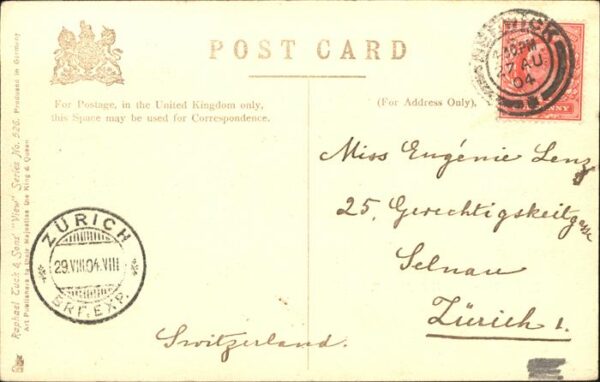 POST CARD
For Postage, in the United Kingdom only,
this Space may be used for Correspondence.
(For Address Only).
4.40PM
27 AU
04
NNY
Miss Eugénie Lenz
25, Gerechtigskeitgasse
Selnau
Zürich 1.
Switzerland.
ZÜRICH
29.VIII.04.VIII
BRF.EXP.
Raphael Tuck & Sons' "View" Series No. 526. Produced in Germany
Art Publishers to their Majesties the King & Queen